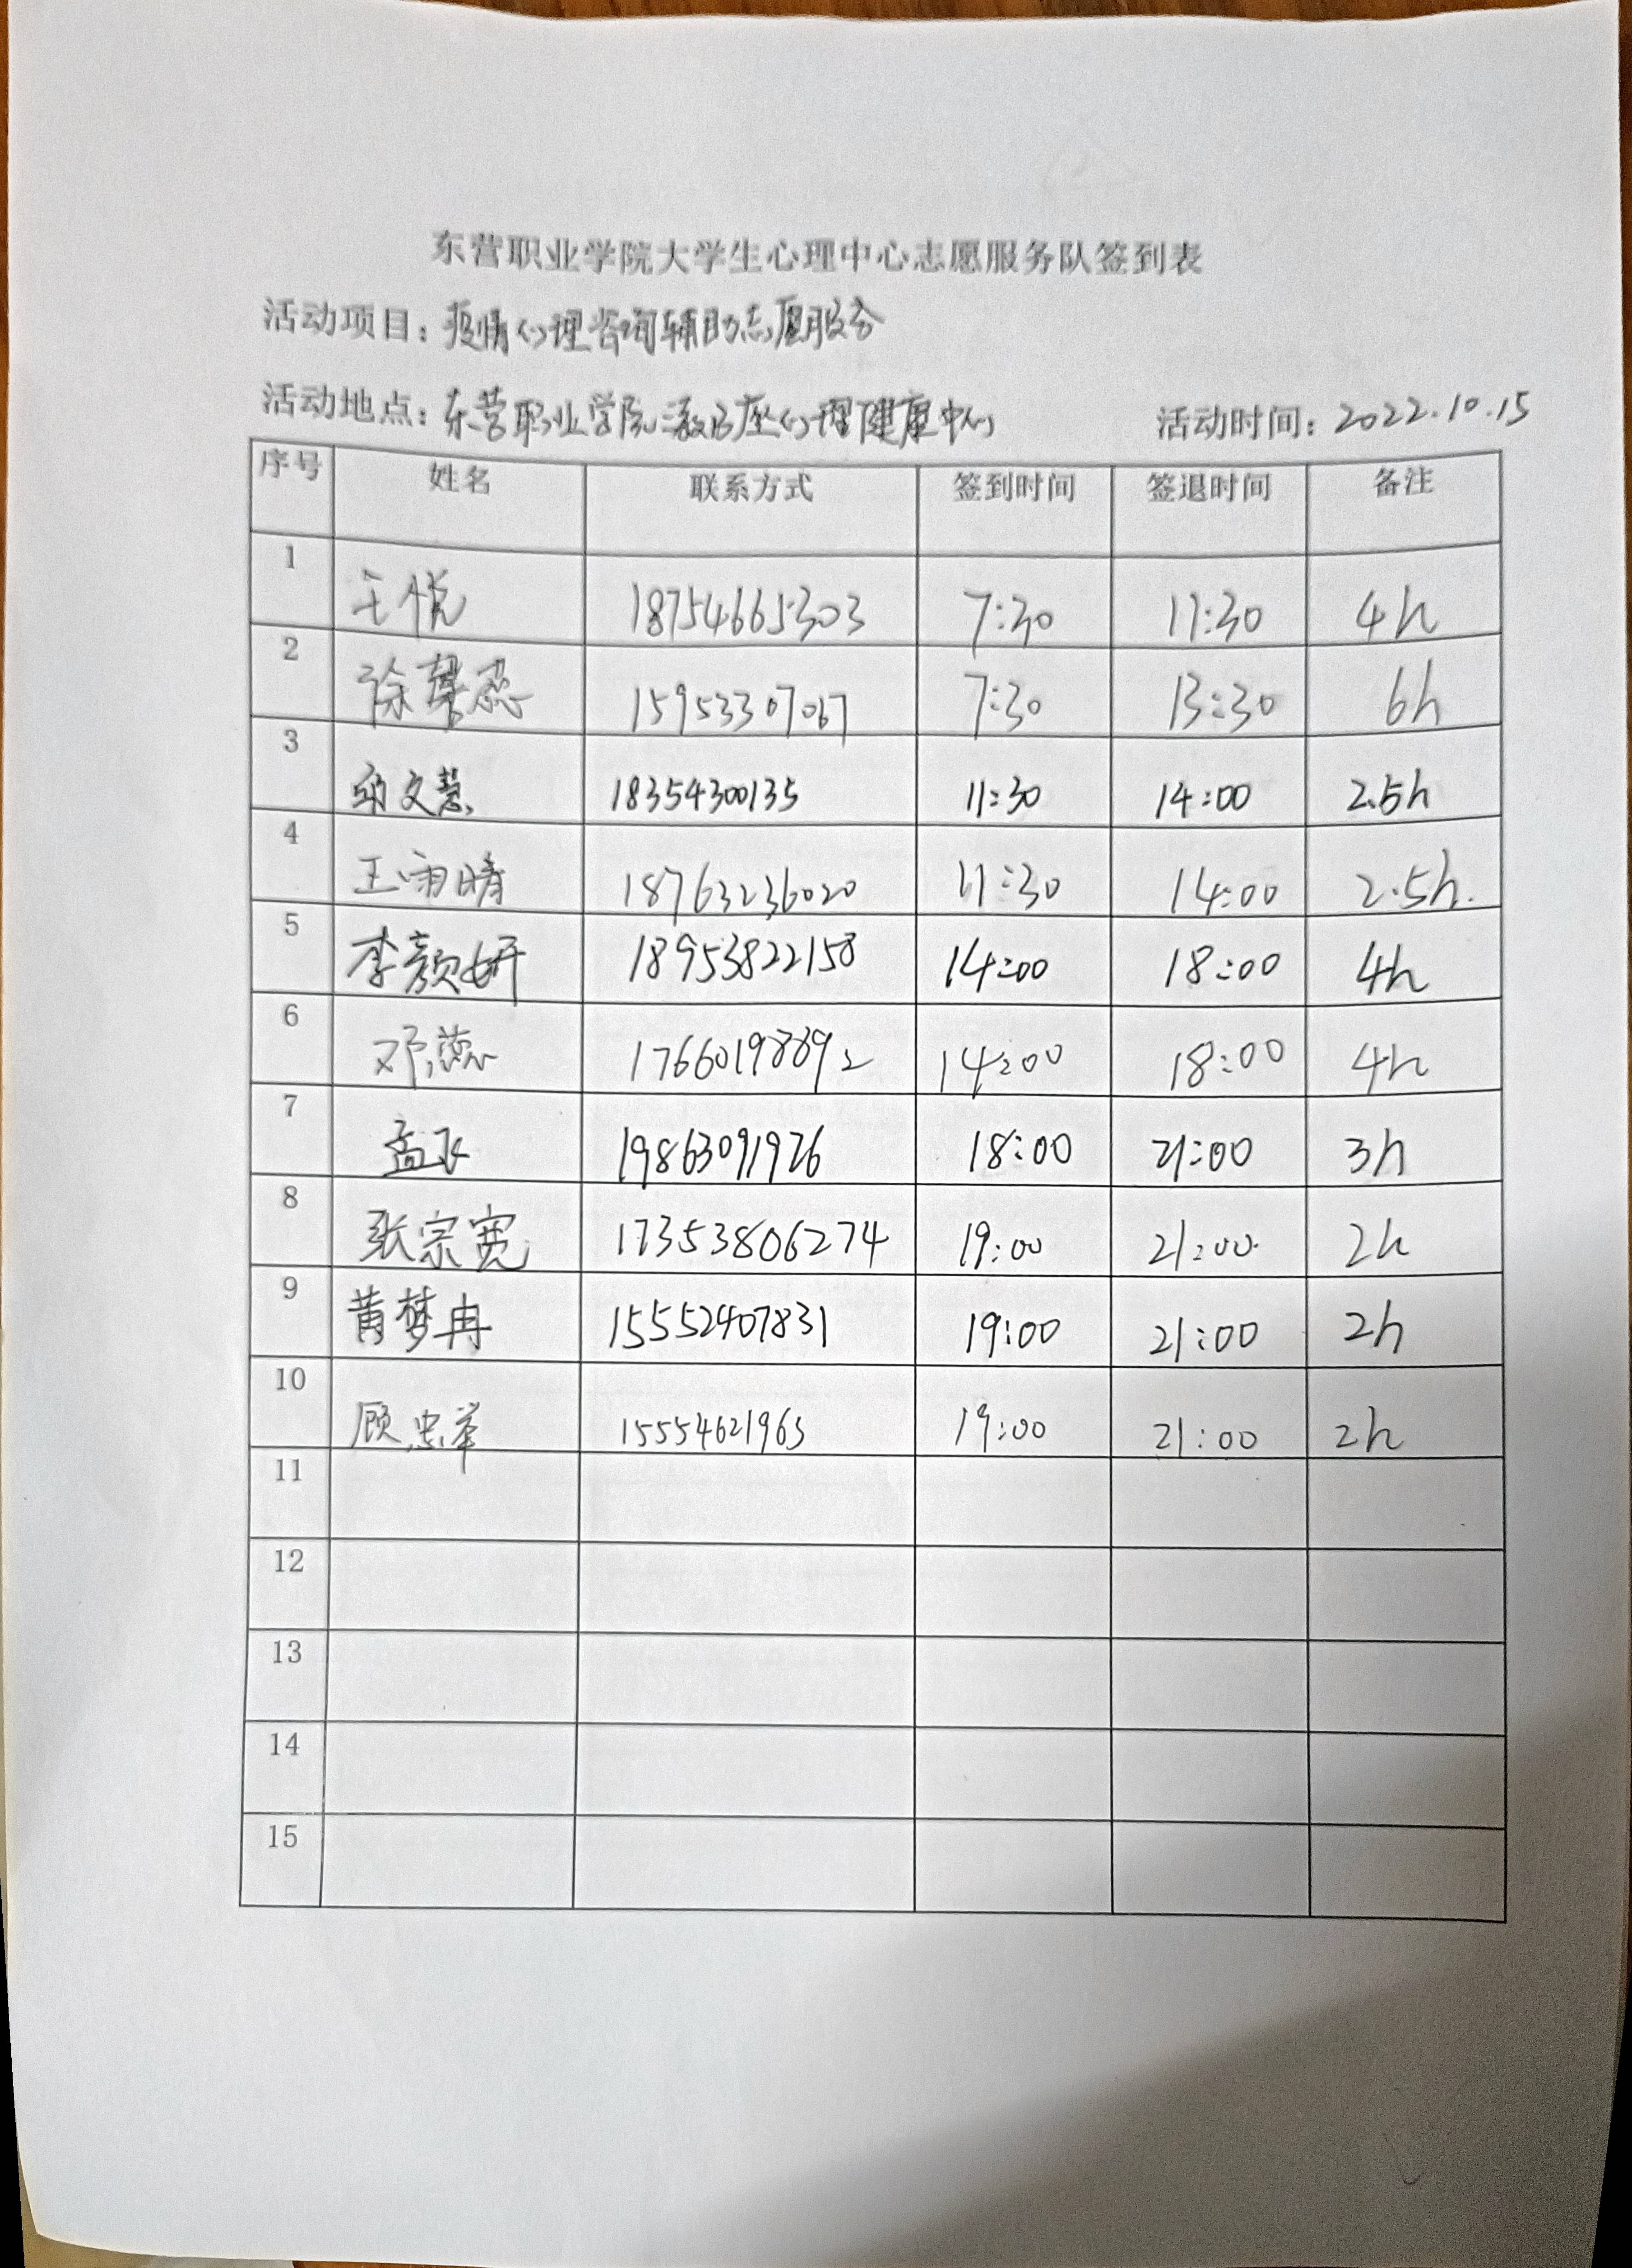 东营职业学院大学生心理中心志愿服务队签到表
活动项目：疫情心理咨询辅助志愿服务
活动地点：东营职业学院教B座心理健康中心 活动时间：2022.10.15
序号 姓名 联系方式 签到时间 签退时间 备注
1 王悦 18754665303 7:30 11:30 4h
2 徐馨蕊 15953307067 7:30 13:30 6h
3 文慧 18354300135 11:30 14:00 2.5h
4 王雨晴 18763236020 11:30 14:00 2.5h.
5 李颜妍 18953822158 14:00 18:00 4h
6 邓蕊 17660198892 14:00 18:00 4h
7 孟飞 19863091926 18:00 21:00 3h
8 张宗宽 17353806274 19:00 21:00 2h
9 黄梦冉 15552407831 19:00 21:00 2h
10 顾忠举 15554621963 19:00 21:00 2h
11
12
13
14
15